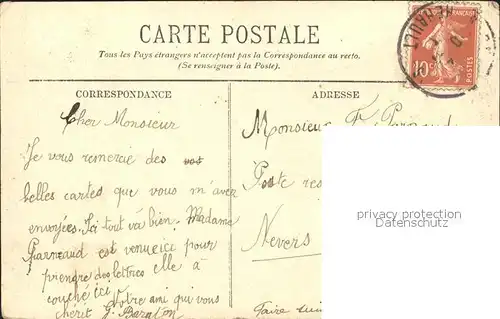 CARTE POSTALE
Tous les Pays étrangers n'acceptent pas la Correspondance au recto.
(Se renseigner à la Poste).
CORRESPONDANCE
Cher Monsieur
Je vous remercie des vos
belles cartes que vous m'avez
envoyées. Ici tout va bien. Madame
Garneaud est venue ici pour
prendre des lettres elle à
couché ici
Votre ami qui vous
chérit G. Baralon
ADRESSE
Monsieur F. Garnaud
Poste res
Nevers
Faire suiv
HÉRAULT
FRANÇAISE
10c
POSTES
privacy protection
Datenschutz